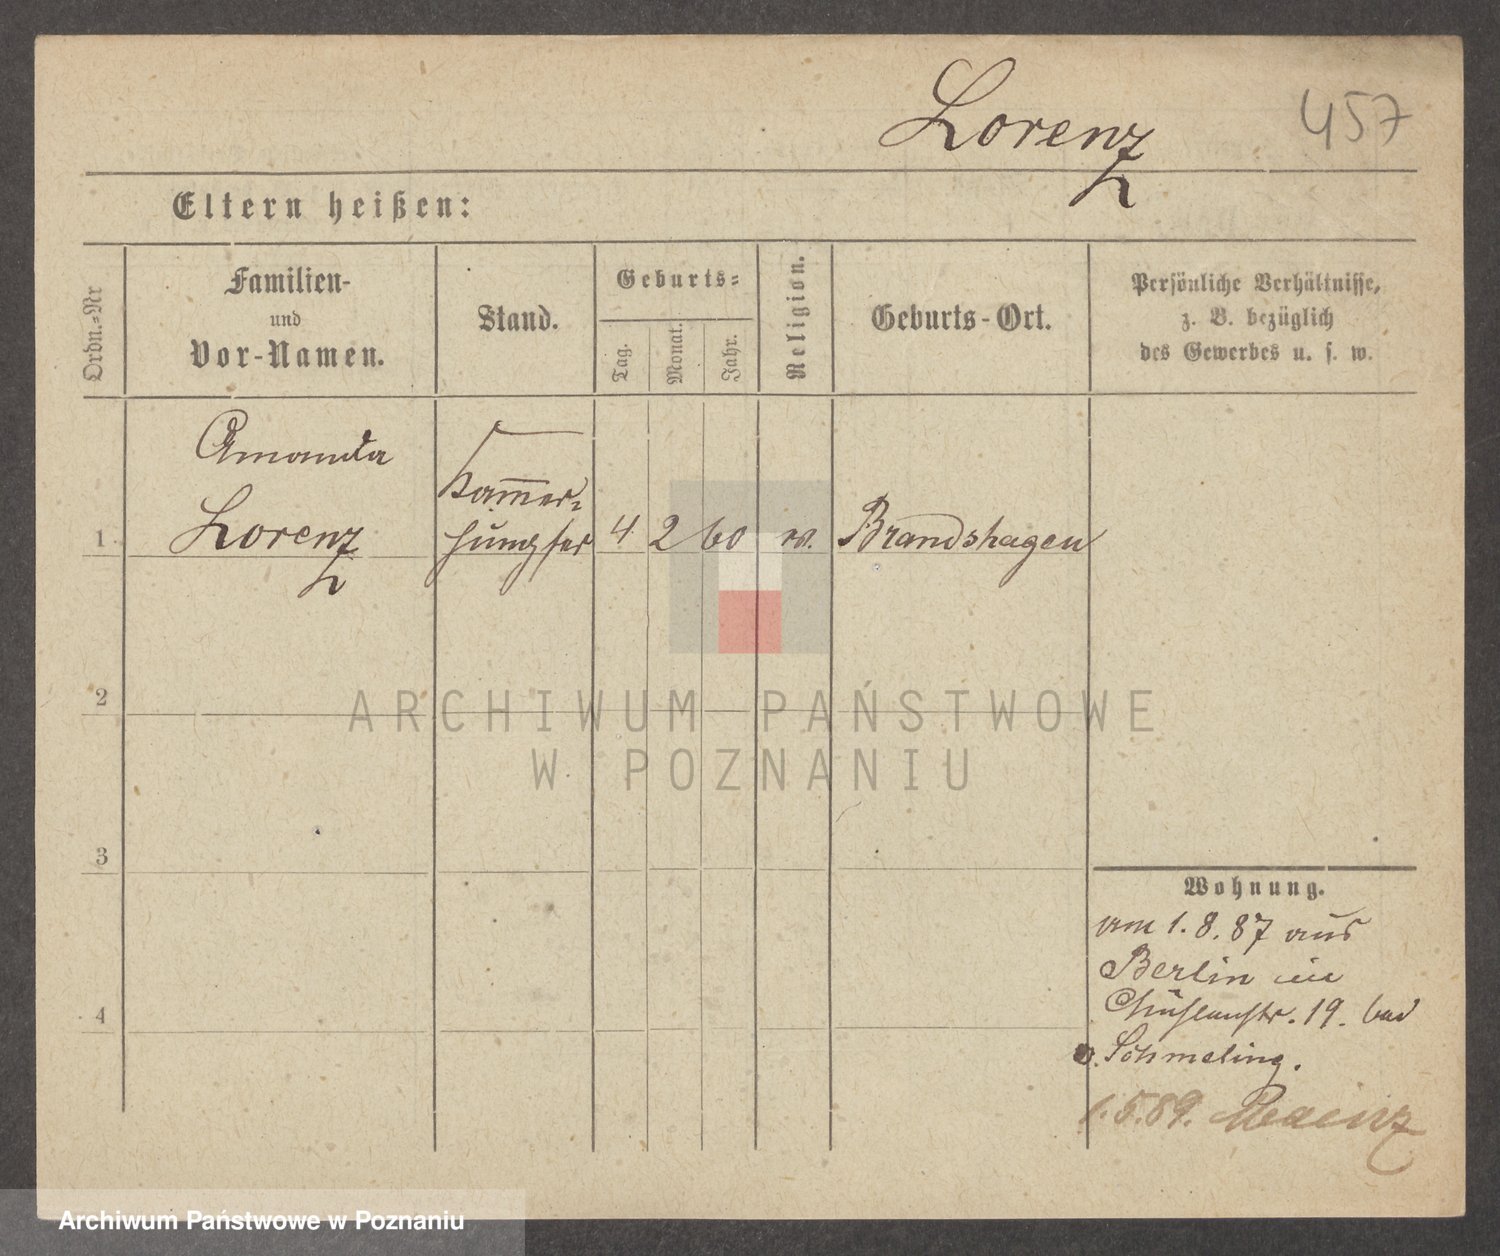 Lorenz
457
Eltern heißen:
Ordn.=Nr
Familien-
und
Vor-Namen.
Stand.
Geburts=
Tag.
Monat.
Jahr.
Religion.
Geburts-Ort.
Persönliche Verhältnisse,
z. B. bezüglich
des Gewerbes u. s. w.
Amanda
Lorenz
Kam̅er=
jungfer
1
4
2
60
ev.
Brandshagen
2
3
4
Wohnung.
am 1. 8. 87 aus
Berlin in
Mühlenstr. 19. bei
v. Schmeling.
1.5.89. Mainz
ARCHIWUM PAŃSTWOWE
W POZNANIU
Archiwum Państwowe w Poznaniu